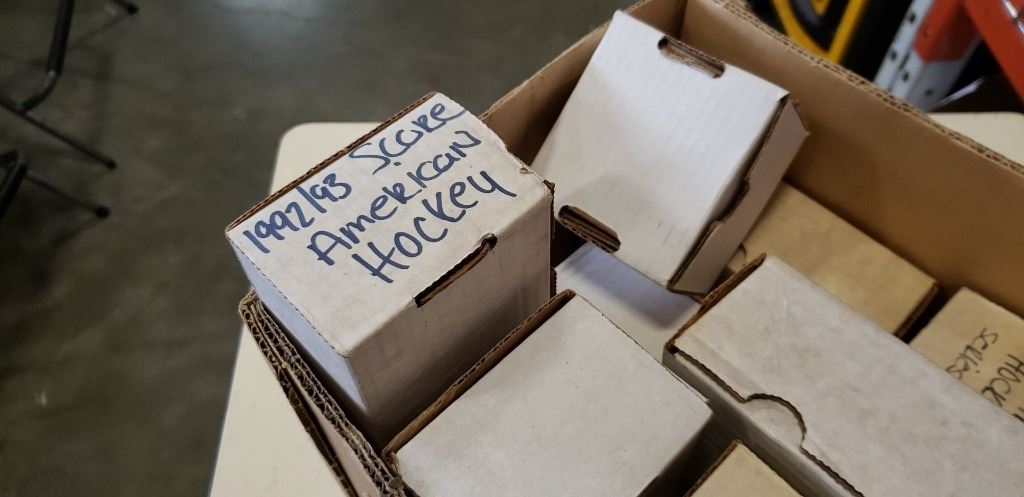 1992/93 Score
American
Hockey
Hock
Series